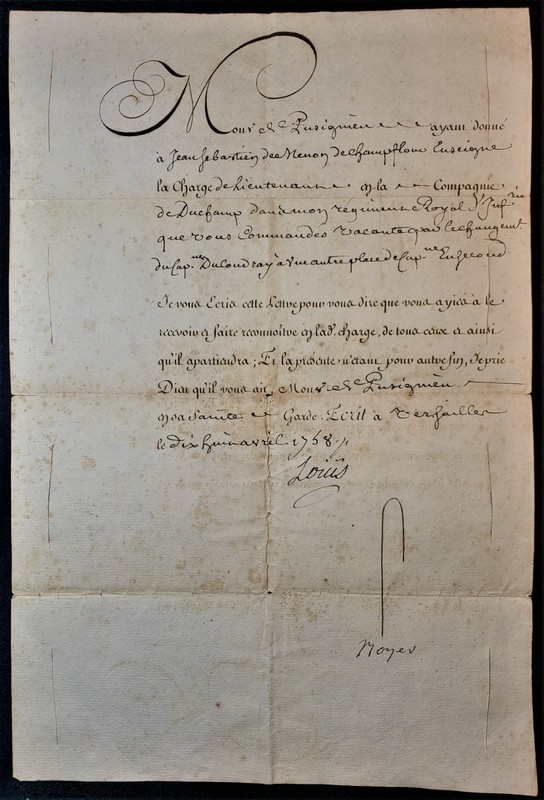 Mons. de Pusignieu ayant donné
à Jean Sebastien de Menon de Champflour Enseigne
la Charge de Lieutenant en la Compagnie
de Duchamp dans mon régiment Royal d'Infrie
que vous Commandés vacante par le changemt.
du Capne. Ducoudray à une autre place de Capne. En Second
Je vous Ecris cette Lettre pour vous dire que vous ayiés à le
recevoir et faire reconnoître en lad. charge, de tous ceux et ainsi
qu'il apartiendra; Et la présente n'étant pour autre fin, Je prie
Dieu qu'il vous ait, Mons. de Pusignieu
en sa Sainte Garde. Ecrit à Versailles
le dix huit avril 1758./.
Louis